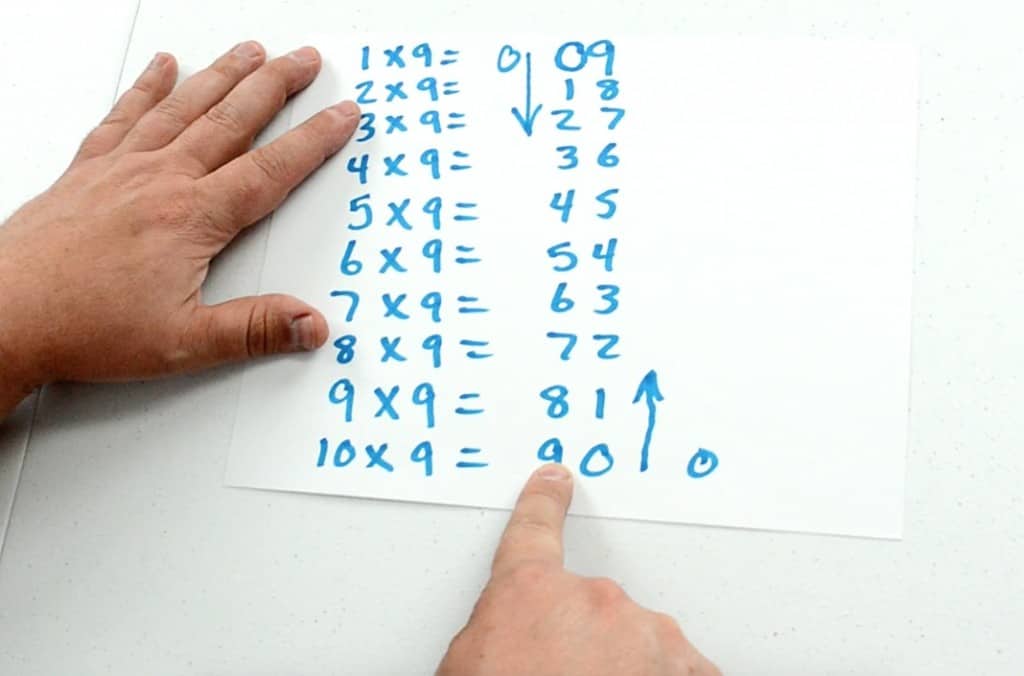 1 x 9 = 0 09
2 x 9 = 1 8
3 x 9 = 2 7
4 x 9 = 3 6
5 x 9 = 4 5
6 x 9 = 5 4
7 x 9 = 6 3
8 x 9 = 7 2
9 x 9 = 8 1
10 x 9 = 9 0 0